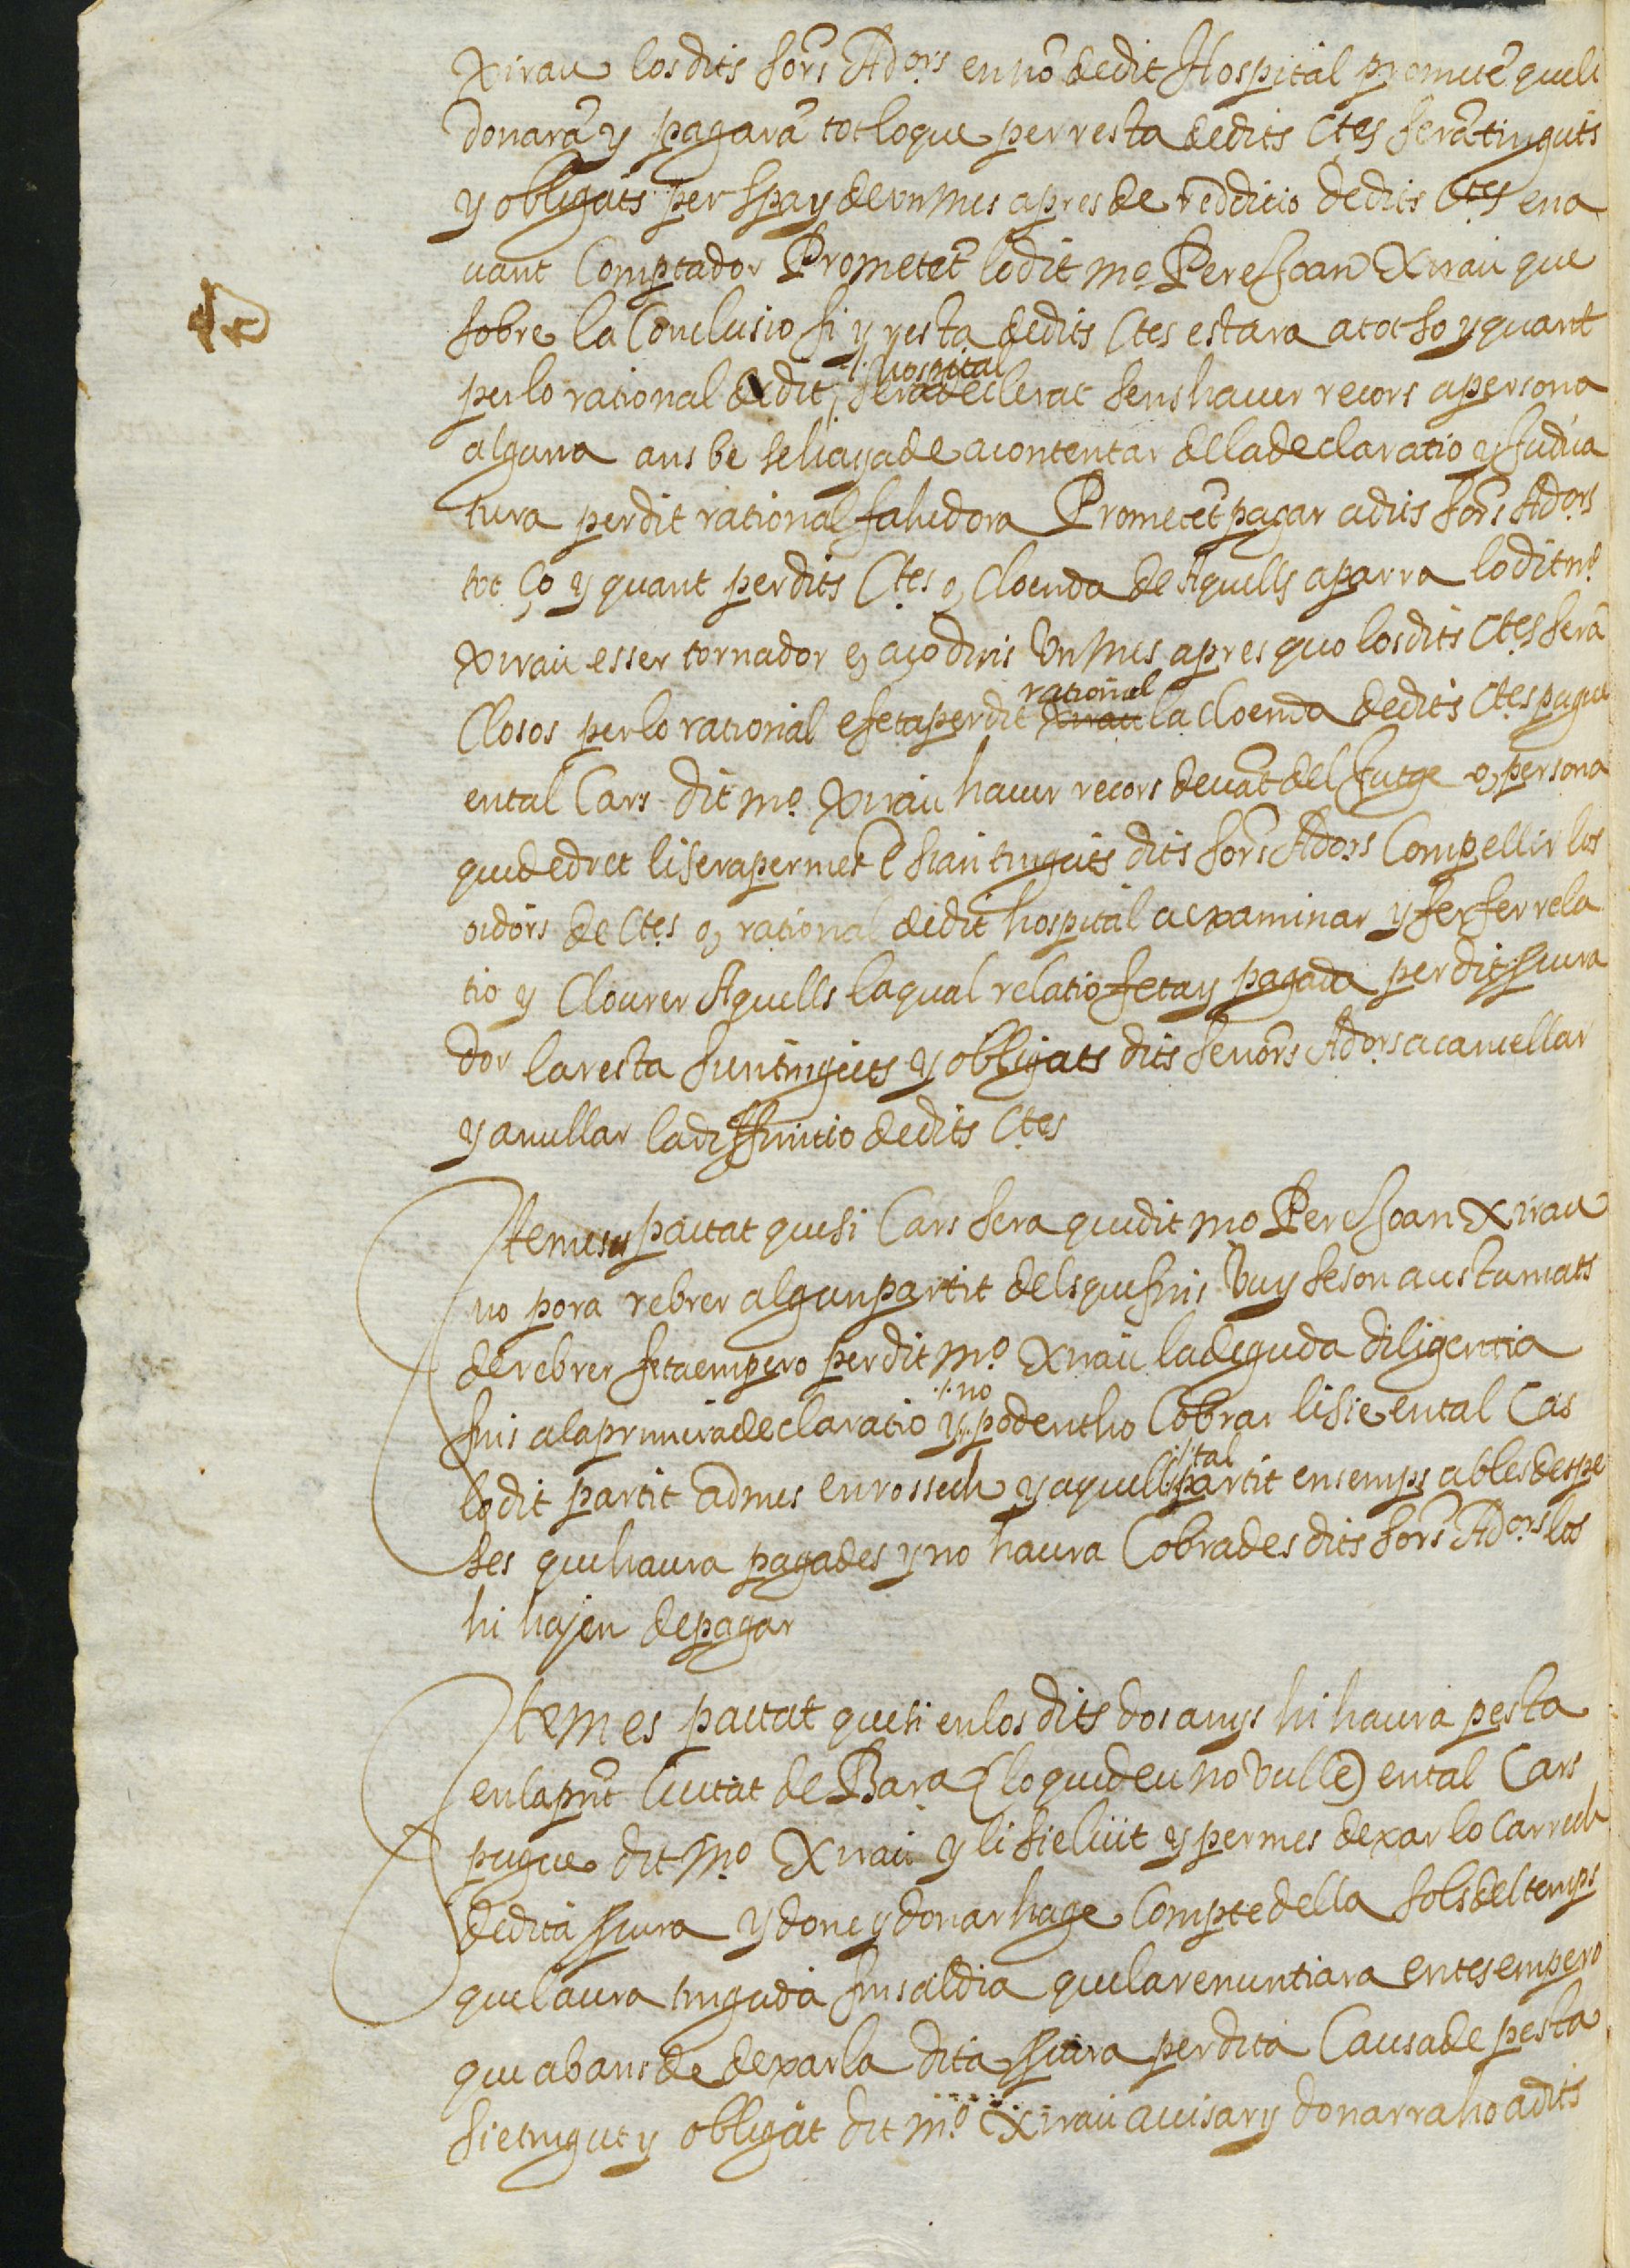 Xirau los dits sors Ador.s en nõ de dit Hospital prometẽ que li
donarã y pagarã tot lo que per resta de dits Ctes serã tinguts
y obligats per spay de un mes apres de reddicio de dits Ctes ena
vant Comptador Prometẽt lo dit mº Pere Joan Xirau que
sobre la Conclusio fi y resta de dits Ctes estara a tot so y quant
./. hospital
per lo rational de dit, sera declerat sens haver recors a persona
alguna ans be se haya de acontentar de la declaratio y Judica
tura per dit rational fahedora Prometẽt pagar a dits sors Adors
tot ço y quant per dits Ctes o, Cloenda de Aquells aparra lo dit mº
Xirau esser tornador e, aço dins Un mes apres quo los dits Ctes serã
rational
Closos per lo rational e feta per dit Xirau la cloenda de dits Ctes pugue
en tal Cars dit mº Xirau haver recors devãt del Jutge o, persona
que de dret li sera permes E sian tinguts dits sors Adors Compellir los
oidors de Ctes o, rational de dit hospital a examinar y fer fer rela
tio y Clourer Aquells la qual relatio feta y pagada per dit scura
dor la resta sien tinguts y obligats dits senors Adors a cancellar
y anullar la diffinitio de dits Ctes
Item es pactat que si Cars sera que dit mº Pere Joan Xirau
no pora rebrer algun partit dels que fins Vuy se son acustumats
de rebrer feta empero per dit mº Xirau la deguda diligentia
./. no
fins a la primera declaratio y podentho Cobrar li sie en tal Cas
./. tal
lo dit partit admes en rossech y aquell partit ensemps ab les despe
ses que haura pagades y no haura Cobrades dits sors Adors los
hi hajen de pagar
Item es pactat que si en los dits dos anys hi haura pesta
en la pnt Ciutat de Barª (lo que deu no Vulle) en tal Cars
pugue dit mº Xirau y li sie licit y permes dexar lo Carrech
de dita scura y done y donar hage Compte de lla sols del temps
que laura tinguda fins al dia que la renuntiara entes empero
que abans de dexar la dita scura per dita Causa de pesta
sie tingut y obligat dit mº Xirau avisar y donar raho a dits